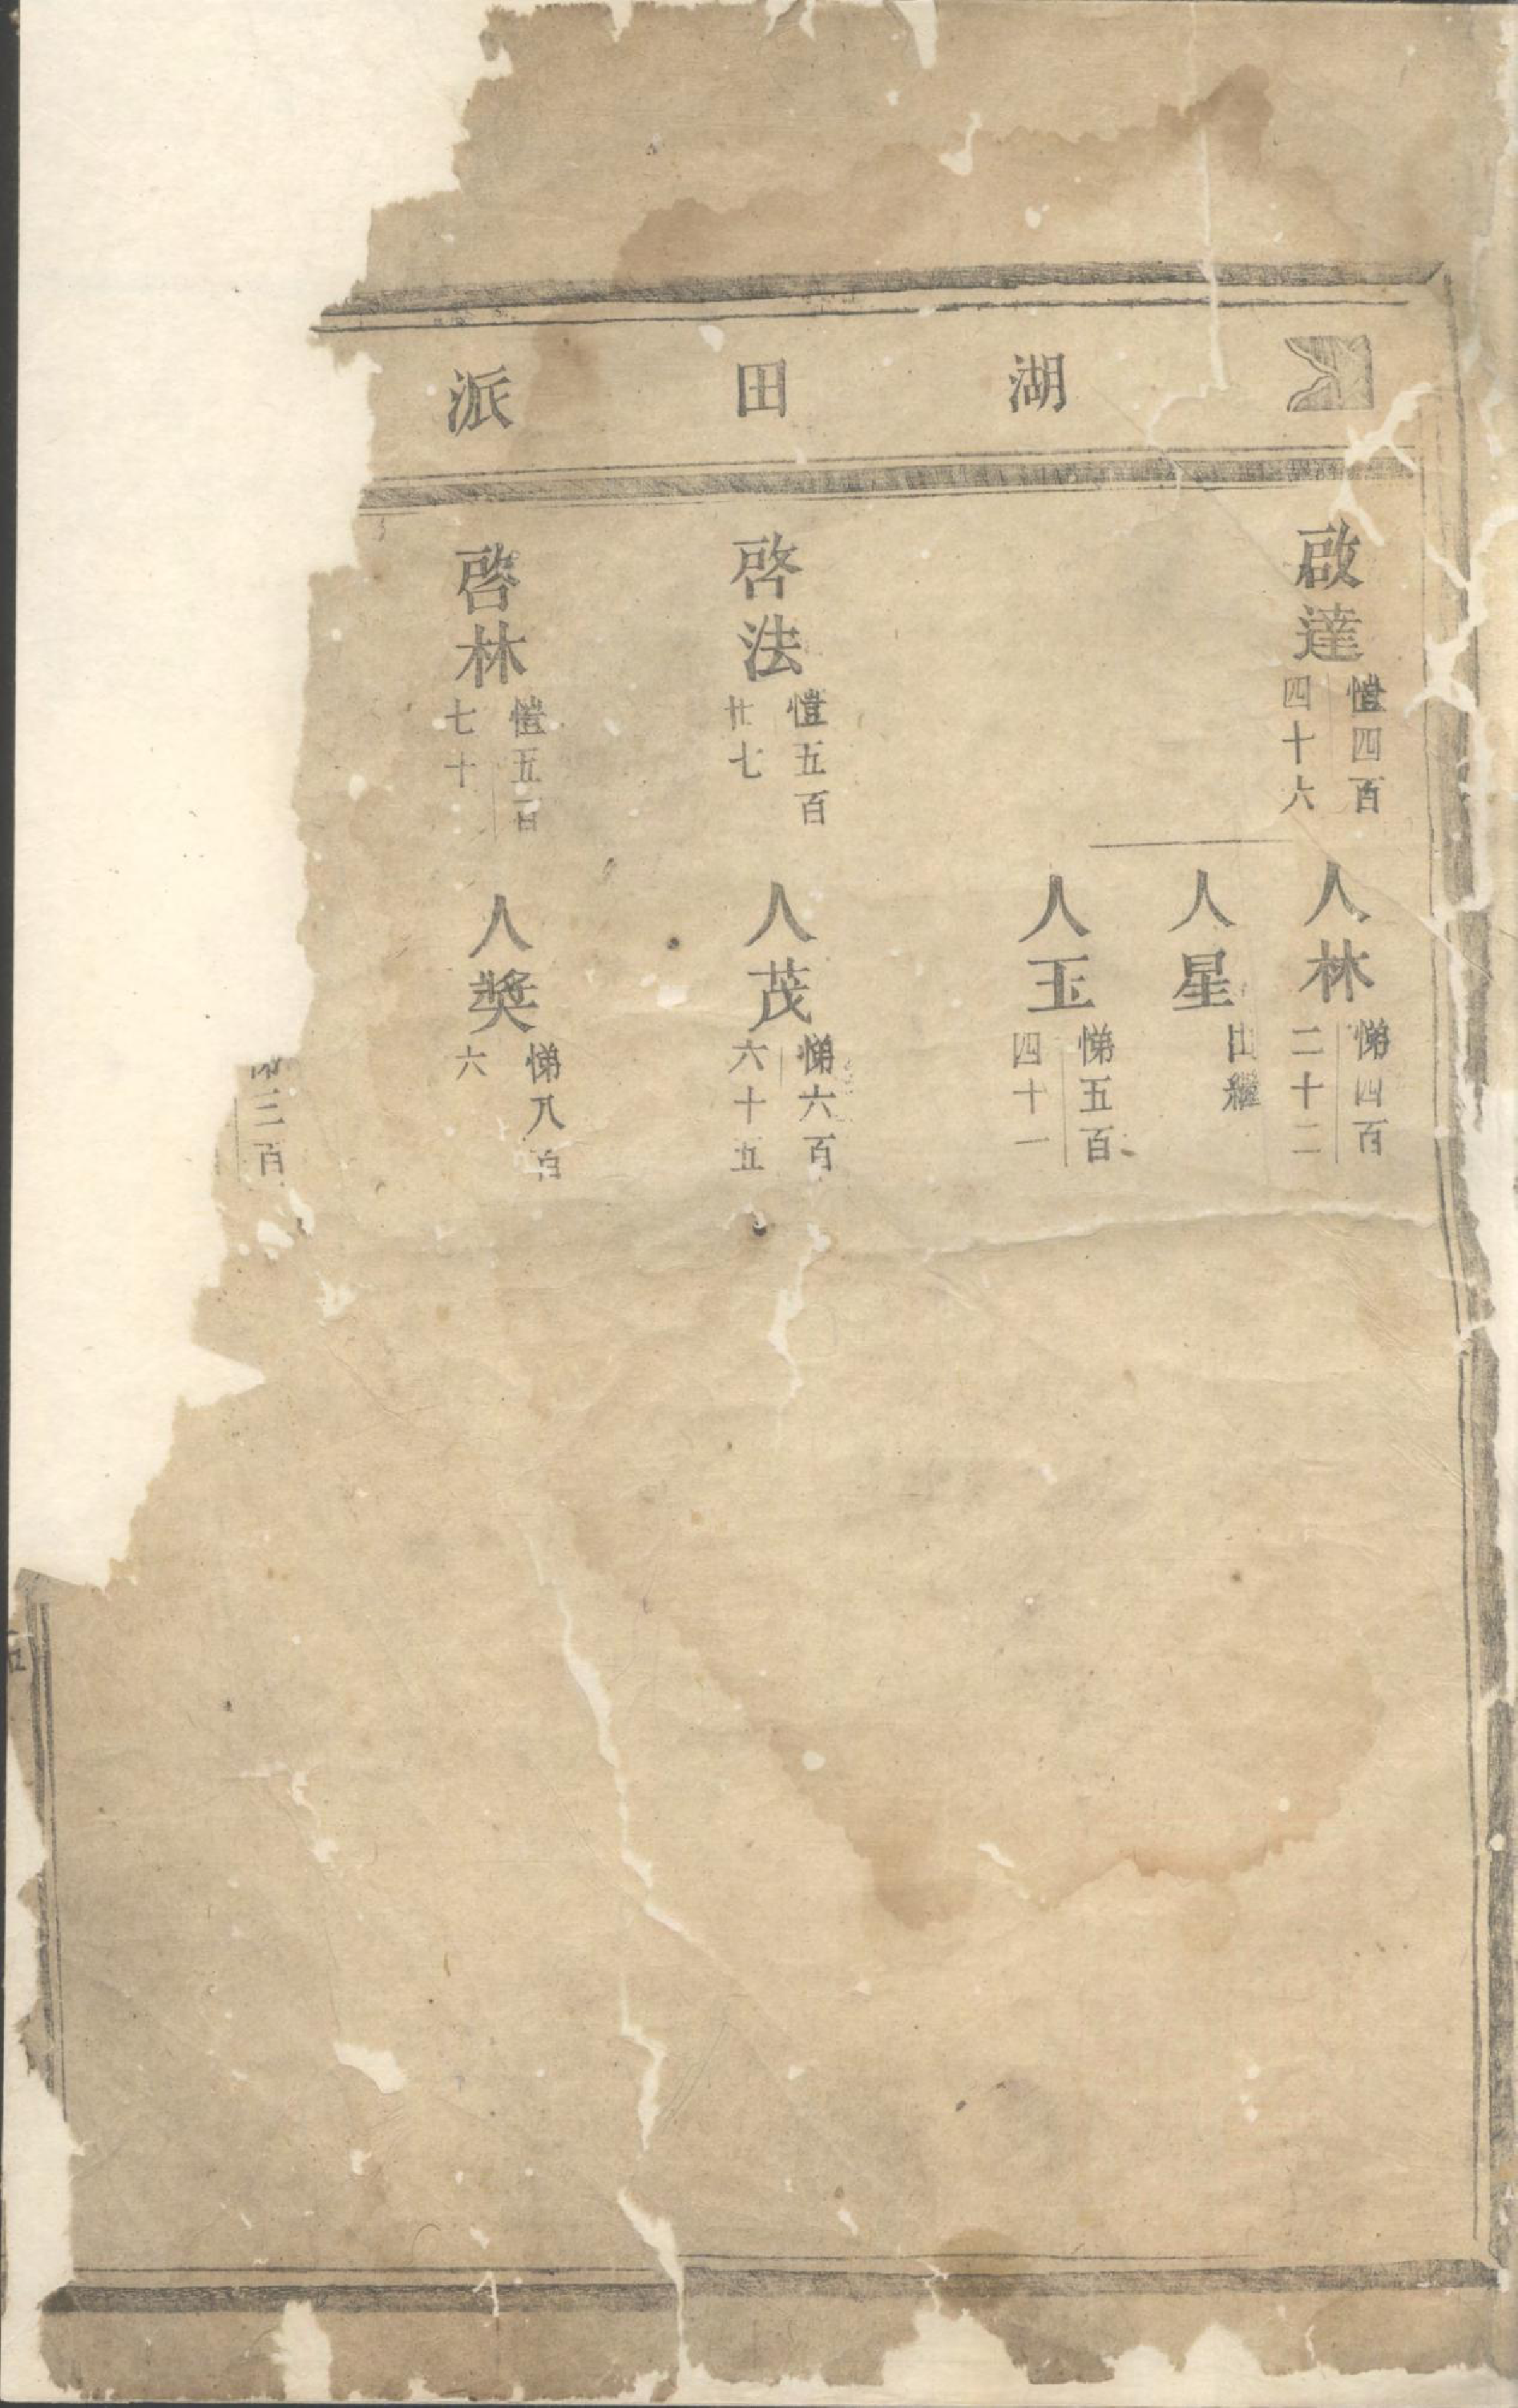 湖田派
啟達
愷四百
四十六
人林
悌四百
二十二
人星
出繼
人玉
悌五百
四十一
啓法
愷五百
廿七
人茂
悌六百
六十五
啓林
愷五百
七十
人奬
悌八百
六
三百